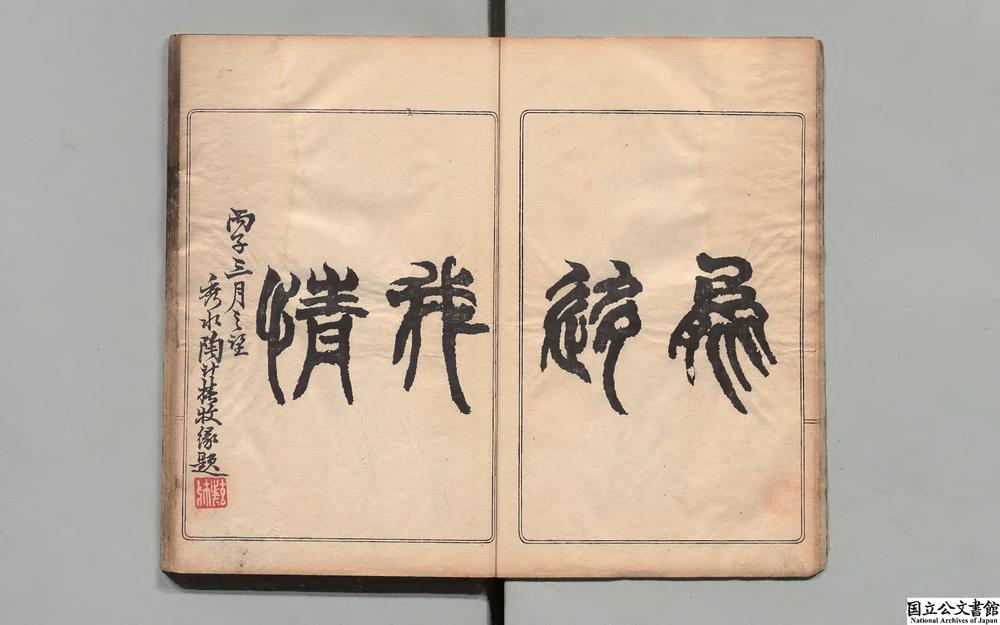 為迻我情
丙子三月之望
秀水陶牧緣題
国立公文書館
National Archives of Japan